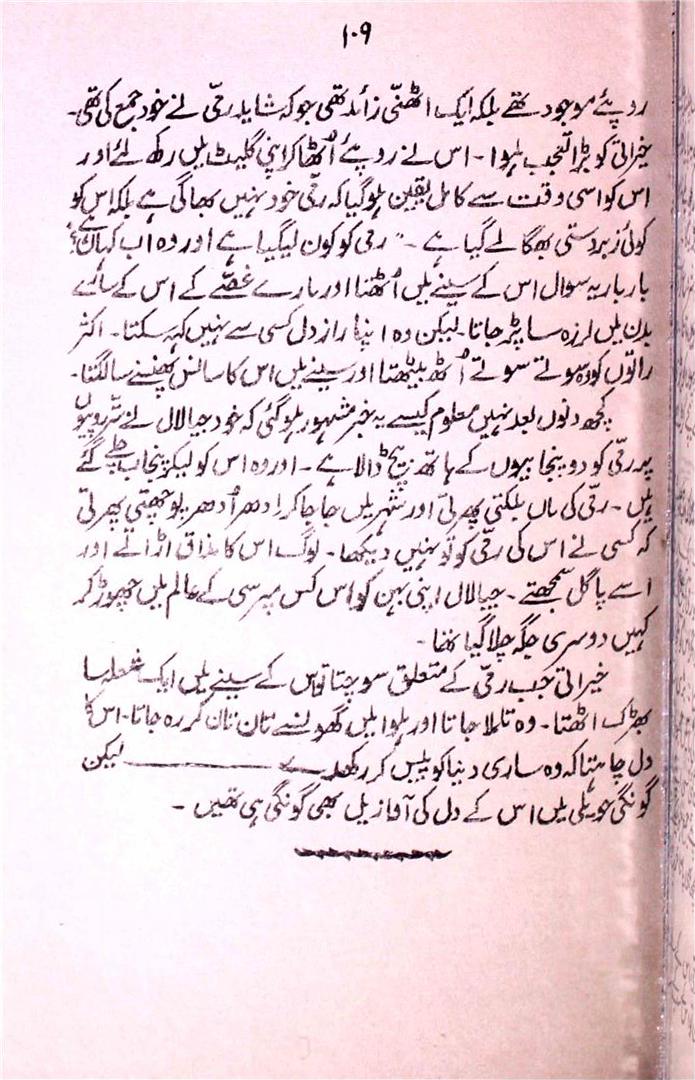 ۱۰۹
روپئے موجود تھے بلکہ ایک اٹھنّی زائد تھی جو کہ شاید رمّی نے خود جمع کی تھی۔
خیراتی کو بڑا تعجب ہوا۔ اس نے روپئے اُٹھا کر اپنی گلیٹ میں رکھ لئے اور
اس کو اسی وقت سے کامل یقین ہو گیا کہ رمّی خود نہیں بھاگی ہے بلکہ اس کو
کوئی زبردستی بھگا لے گیا ہے۔ " رمی کو کون لیگیا ہے اور وہ اب کہاں ہے؟
بار بار یہ سوال اس کے سینے میں اُٹھتا اور مارے غصّے کے اس کے سارے
بدن میں لرزہ سا پڑ جاتا۔ لیکن وہ اپنا راز دل کسی سے نہیں کہہ سکتا۔ اکثر
راتوں کو وہ سوتے سوتے اُٹھ بیٹھتا اور سینے میں اس کا سانس پھنسنے سا لگتا۔
کچھ دنوں بعد نہیں معلوم کیسے یہ خبر مشہور ہو گئی کہ خود جیالال نے روپیوں
پہ رمّی کو دو پنجابیوں کے ہاتھ بیچ ڈالا ہے۔ اور وہ اس کو لیکر پنجاب چلے گئے
ہیں۔ رمّی کی ماں بلکتی پھرتی اور شہر میں جا جا کر ادھر اُدھر پوچھتی پھرتی
کہ کسی نے اس کی رمّی کو تو نہیں دیکھا۔ لوگ اس کا مذاق اڑاتے اور
اسے پاگل سمجھتے۔ جیالال اپنی بہن کو اس کس مپرسی کے عالم میں چھوڑ کر
کہیں دوسری جگہ چلا گیا تھا۔
خیراتی جب رمّی کے متعلق سوچتا تو اس کے سینے میں ایک شعلہ سا
بھڑک اٹھتا۔ وہ تلملا جاتا اور ہوا میں گھونسے تان تان کر رہ جاتا۔ اس کا
دل چاہتا کہ وہ ساری دنیا کو پیس کر رکھدے ــــــــــ لیکن
گونگی حویلی میں اس کے دل کی آوازیں بھی گونگی ہی تھیں۔